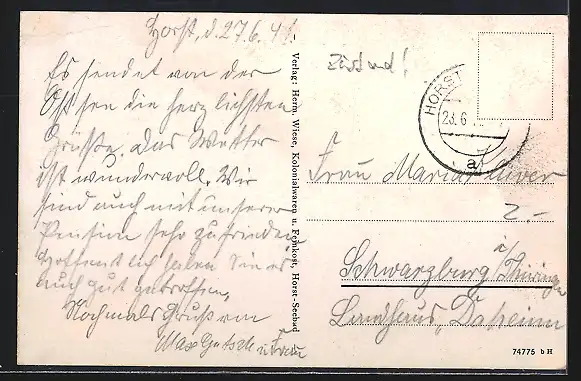 Horst, d. 27.6.41.
Es sendet von der
Ostsee die herzlichsten
Grüße. Das Wetter
ist wundervoll. Wir
sind auch mit unserer
Pension sehr zufrieden
Hoffentlich haben Sie es
auch gut getroffen,
Nochmals Gruß von
Max u Frau
Verlag: Herm. Wiese, Kolonialwaren u. Feinkost, Horst-Seebad
HORST
23.6
a
Frau Maria
Z.-
Schwarzburg i/Thüringen
Landhaus, Daheim
74775 b H